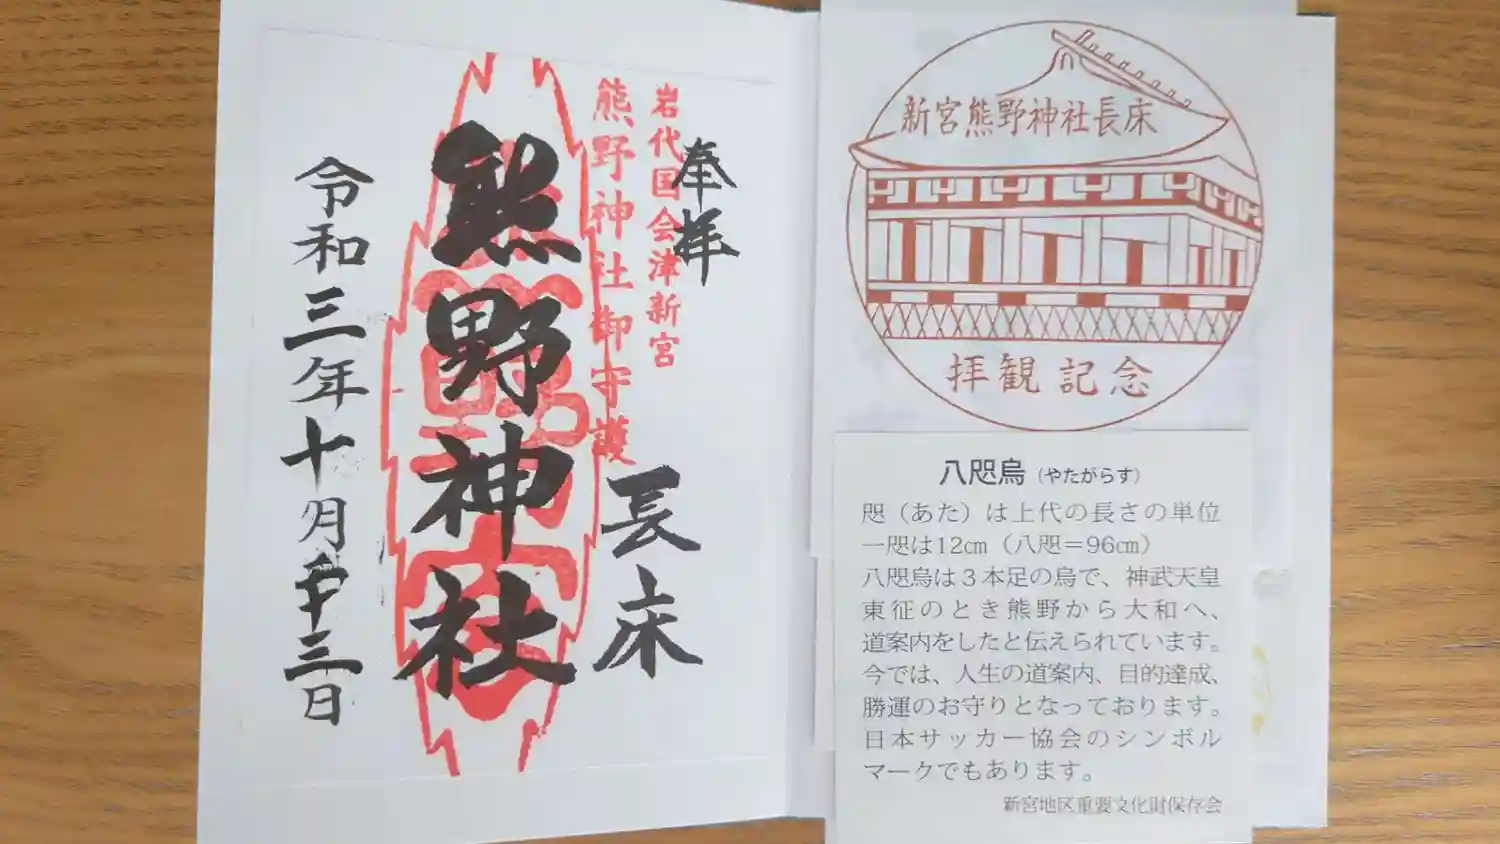 奉拝
岩代国会津新宮
熊野神社御守護
長床
熊野神社
令和三年十月
三日
新宮熊野神社長床
拝観記念
八咫烏（やたがらす）
咫（あた）は上代の長さの単位
一咫は12㎝（八咫＝96㎝）
八咫烏は３本足の烏で、神武天皇
東征のとき熊野から大和へ、
道案内をしたと伝えられています。
今では、人生の道案内、目的達成、
勝運のお守りとなっております。
日本サッカー協会のシンボル
マークでもあります。
新宮地区重要文化財保存会